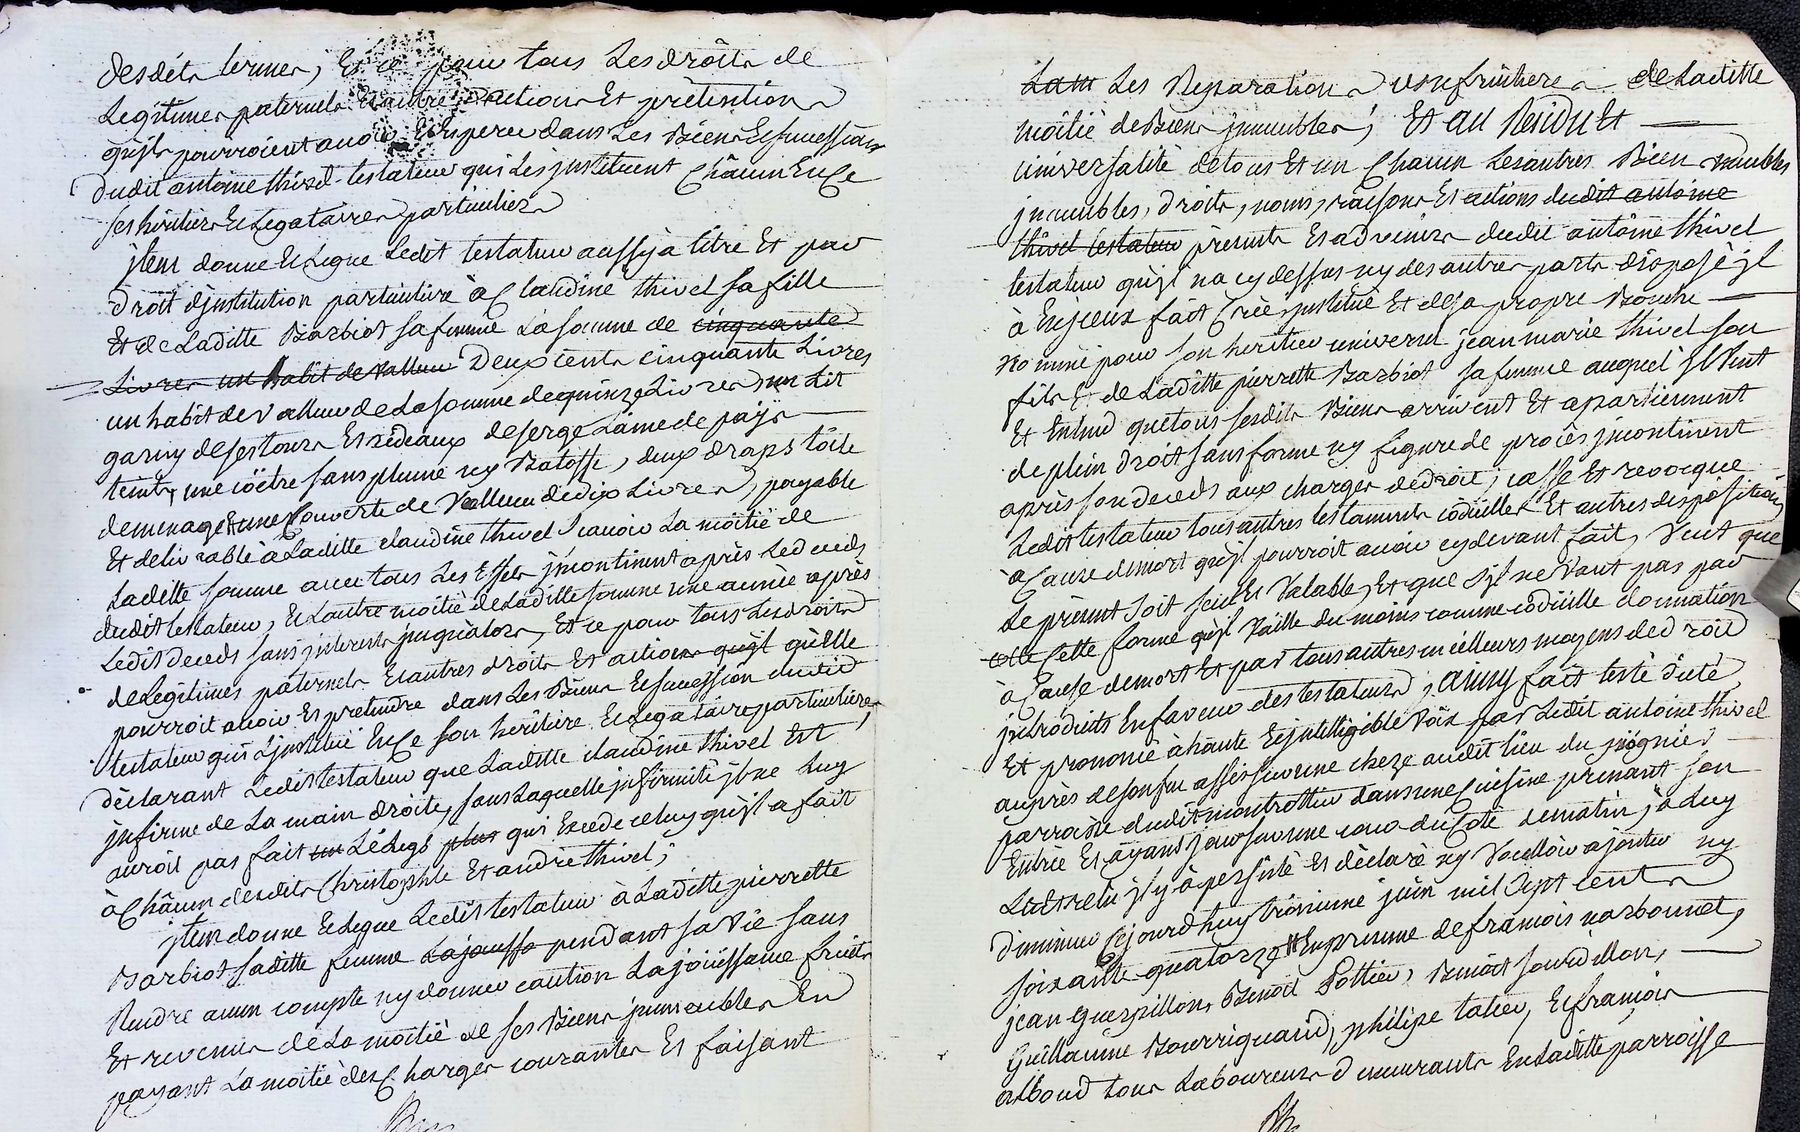 desdéts termes, Et ce pour tous Les droits de
Legitimes paternels Et autres actions Et prétentions
qu'jls pourroient avoir Et Esperer dans Les Biens Et sucession
dudit antoine thivel testateur qui Les jnstituent Châcun En Ce
ses heritiers Et Legataires particuliers
jtem donne Et Legue Ledit testateur aussy a titre Et par
droit d'jnstitution particuliere à Claudine thivel sa fille
Et de Laditte Barbiot sa femme La somme de cinquante
Livres un habit de valleur Deux cents cinquante Livres
un habit de valleur de La somme de quinze Livres, un Lit
garny de ses tours Et rideaux de serge Laine de pays
teint, une coëtre sans plume ny Batosse, deux draps toile
de menage Et une Couverte de Valleur de dix Livres, payable
Et delivrable à Laditte claudine thivel scavoir La moitié de
Laditte somme avec tous Les Effets jncontinent après Le deceds
dudit testateur, Et L'autre moitié de Laditte somme une année après
Ledit deceds sans jnterests jusqu'alors, Et ce pour tous Les droits
de Legitimes paternels Et autres droits Et actions qu'jl qu'elle
pourroit avoir Et pretendre dans Les Biens Et sucession dudit
testateur qui L'jnstitué En Ce son heritiere Et Legataire particuliere,
dèclarant Ledit testateur que Laditte claudine thivel Est
jnfirme de La main droite, sans Laquelle jnfirmité jl ne Luy
auroit pas fait un Le Legs plus qui Excede celuy qu'jl a fait
à Châcun desdits Christophle Et andré thivel;
jtem donne Et Legue Ledit testateur à Laditte pierrette
Barbiot saditte femme La jouissa pendant sa Vie sans
Rendre aucun compte ny donner caution La joüissance fruits
Et revenus de La moitié de ses Biens jmmeubles En
payant La moitié des Charges courantes Et faisant
Les Reparations usufruitieres de Laditte
moitié de Biens jmmeubles; Et au Residu Et
universalité de tous Et un Chacun Les autres Biens meubles
jmmeubles, droits, noms, raisons Et actions dudit antoine
thivel testateur présents Et advenirs dudit antoine thivel
testateur qu'jl n'a cy dessus ny des autres parts disposé jl
à En jceux fait Créé jnstitué Et de sa propre Bouche
Nommé pour son heritier universel jean marie thivel son
fils Et de Laditte pierrette Barbiot sa femme auquel jl Veut
Et Entend que tous sesdits Biens arrivent Et apartiennent
de plein droit sans forme ny figure de procès jncontinent
après son deceds aux charges de droit; casse Et revocque
Ledit testateur tous autres testaments codicilles Et autres dispositions
à Cause de mort qu'jl pourroit avoir cy devant fait, Veut que
Le présent soit seul Et Valable, Et que s'jl ne Vaut pas par
cette Cette forme qu'jl Vaille du moins comme codicille donnation
à Cause de mort Et par tous autres meilleurs moyens de droit
jntroduits En faveur des testateurs; ainsy fait testé dicté
Et prononcé à haute Et jntelligible Voix par Ledit antoine thivel
auprès de son feu assis sur une cheze audit lieu du
parroisse dudit montrottier dans une Cuisine prenant son
Entrée Et ayant jour sur une cour du Coté de matin, à Luy
Lu Et relu jl y à persisté Et dèclaré ny Vouloir ajouter ny
diminuer Cejourd'huy troisieme juin mil sept cents
soixante quatorze En presence de francois narbonnet,
jean Guespillon, Benoit Pottier, Benoit sourdillon,
Guillaume Bourriquand, philipe tatier, Et francois
alboud tous Laboureurs demeurants En Laditte parroisse